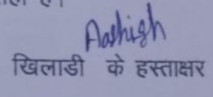 Aashish
खिलाडी के हस्ताक्षर